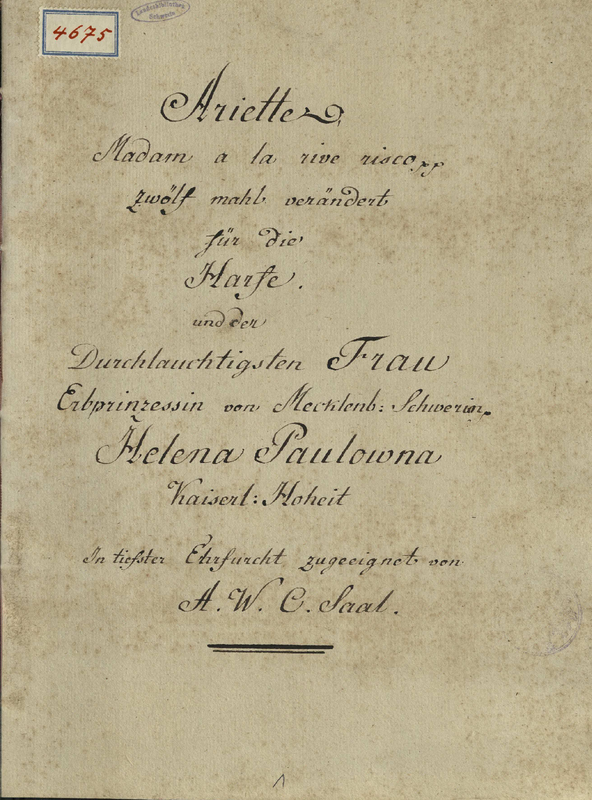 4675
Landesbibliothek
Schwerin
Ariette
Madam a la rive risco pp
zwölf mahl verändert
für die
Harfe.
und der
Durchlauchtigsten Frau
Erbprinzessin von Mecklenb: Schwerin
Helena Paulowna
Kaiserl: Hoheit
In tiefster Ehrfurcht zugeeignet von
A. W. C. Saal.
1